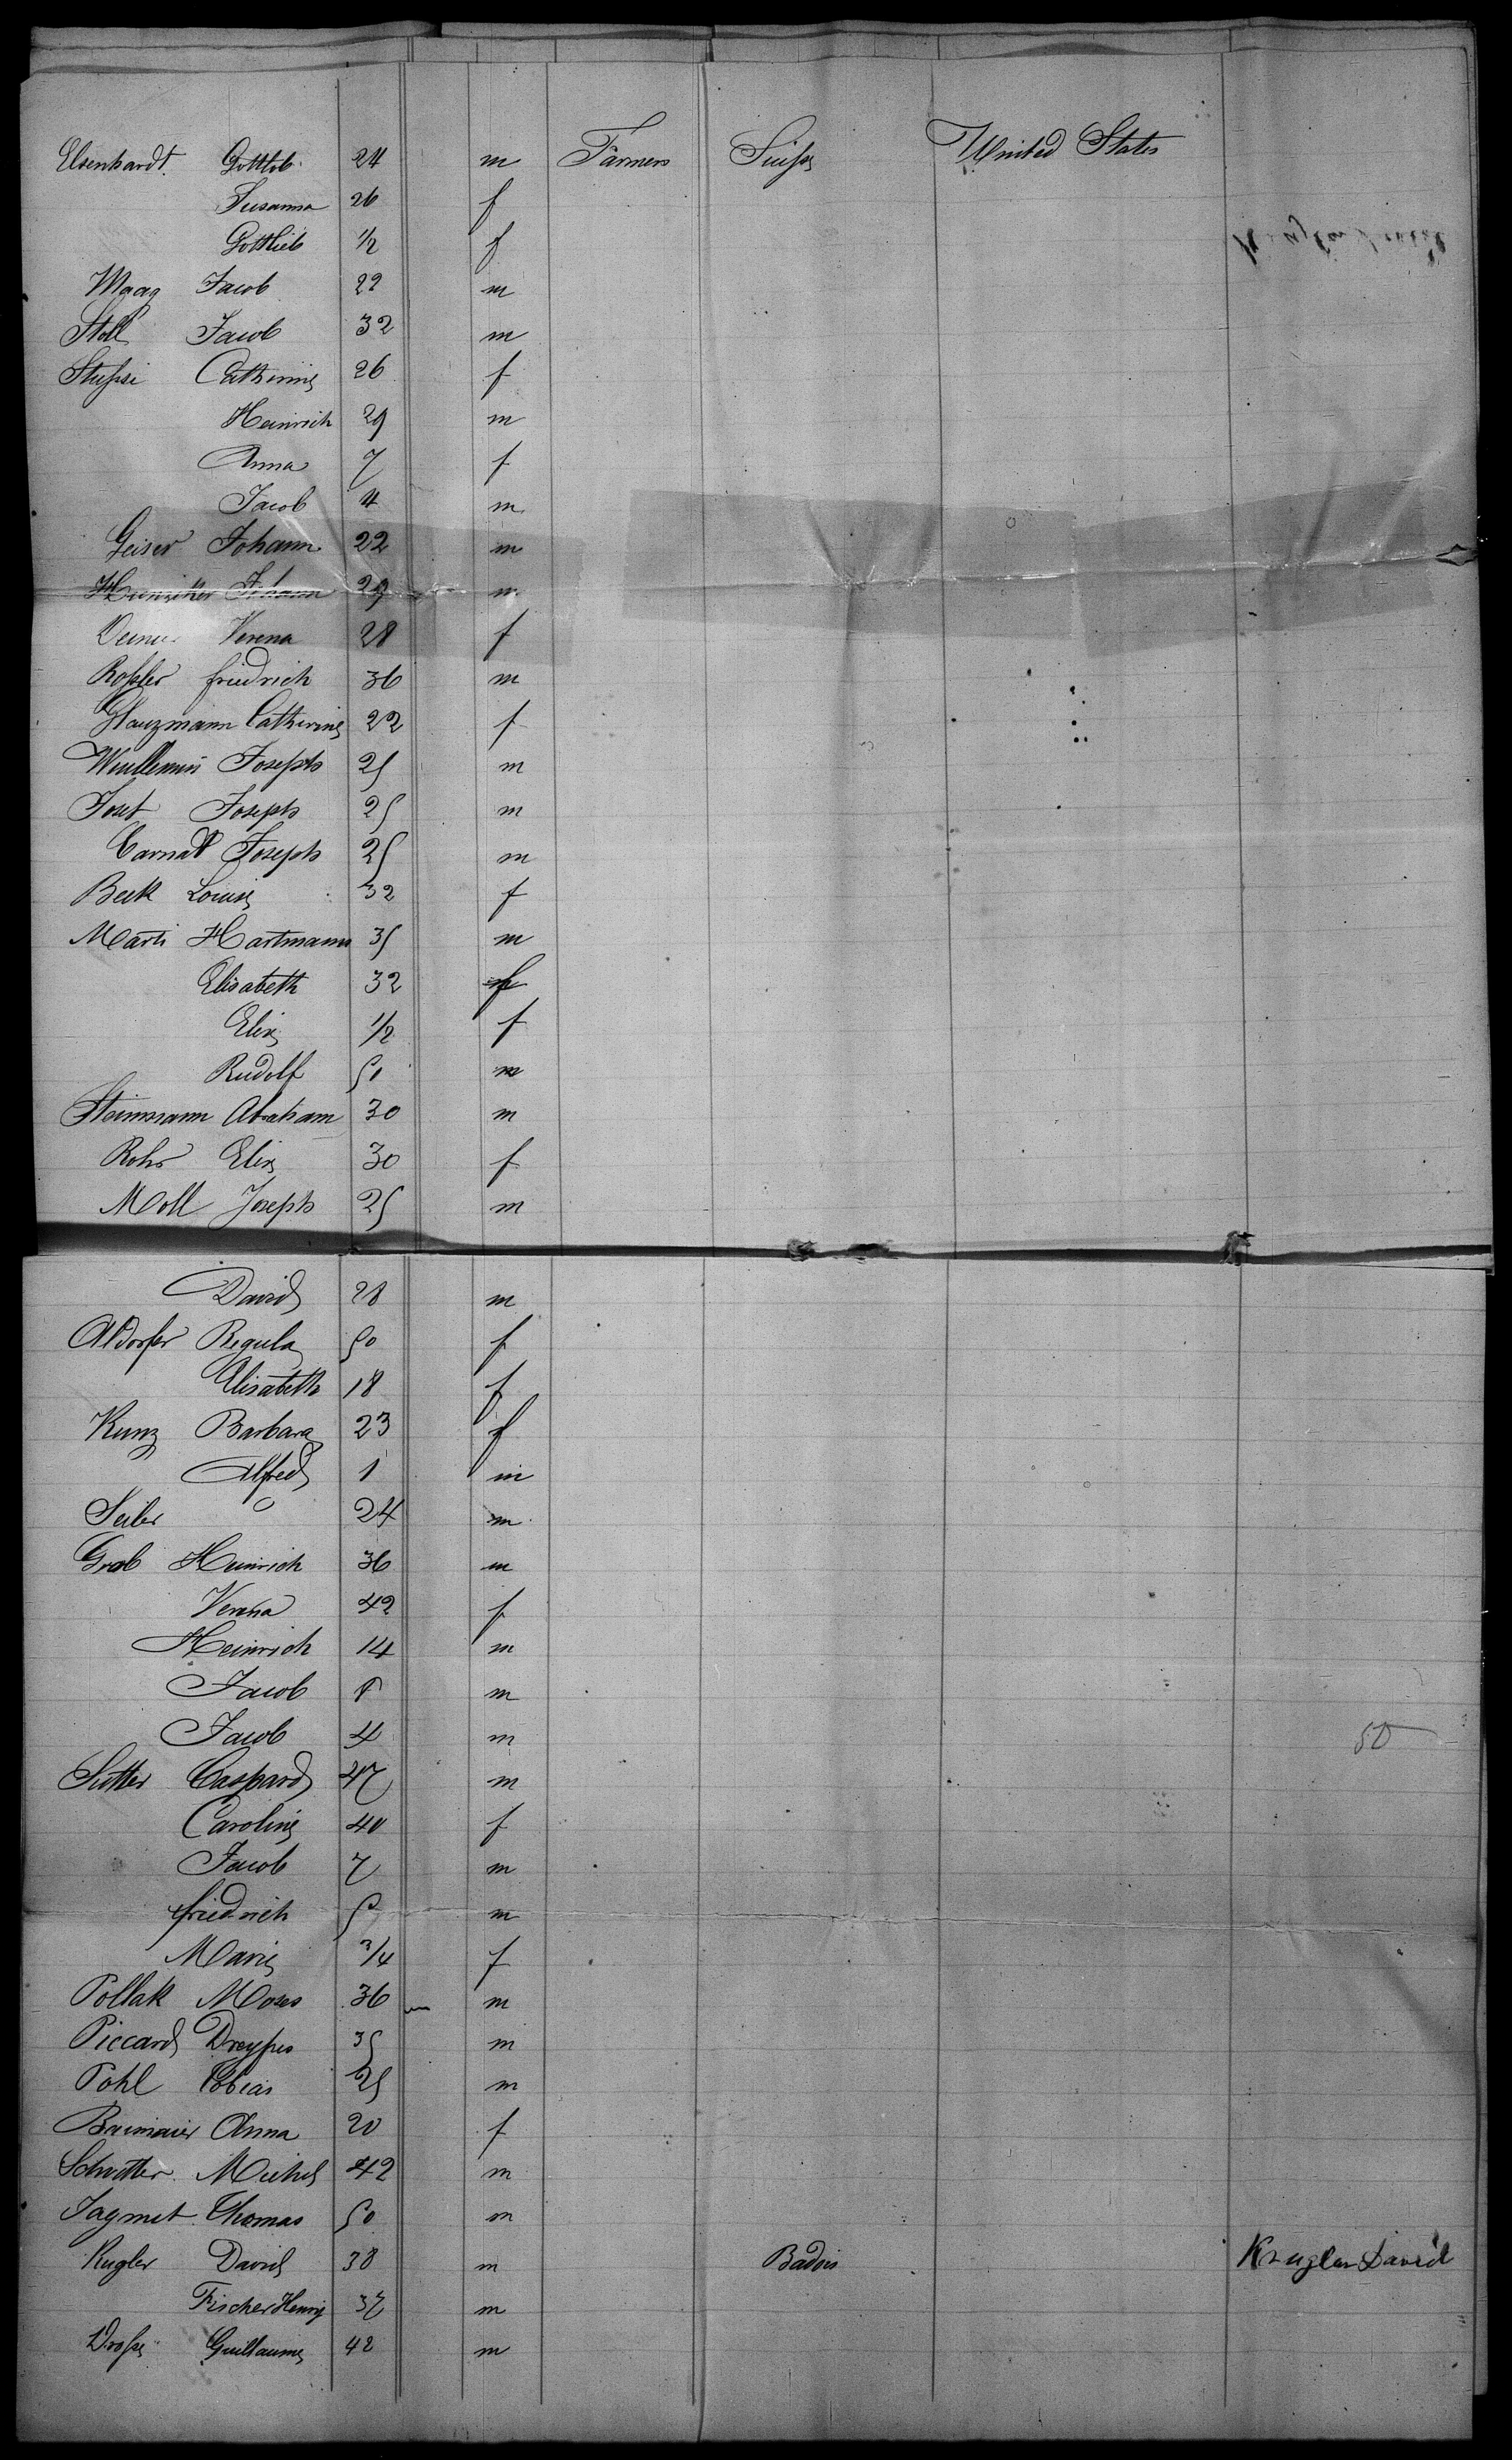 Elsenhardt Gottlob 24 m Farmers Suisse United States
Susanna 26 f
Gottlieb 1/2 f
Maag Jacob 22 m
Stoll Jacob 32 m
Stussi Catherine 26 f
Heinrich 29 m
Anna 7 f
Jacob 4 m
Geiser Johann 22 m
Hunziker Johann 29 m
Verena 28 f
Rossler friedrich 36 m
Glauzmann Catherine 22 f
Wuillemin Joseph 25 m
Joset Joseph 25 m
Carnat Joseph 25 m
Beck Louise 32 f
Marti Hartmann 35 m
Elisabeth 32 f
Elise 1/2 f
Rudolf 51 m
Steinmann Abraham 30 m
Rohr Elise 30 f
Moll Joseph 25 m
David 28 m
Altdorfer Regula 50 f
Elisabeth 18 f
Kunz Barbara 23 f
Alfred 1 m
Seiler " 24 m
Grob Heinrich 36 m
Verena 42 f
Heinrich 14 m
Jacob 8 m
Jacob 4 m 50
Sutter Caspard 47 m
Caroline 40 f
Jacob 7 m
friedrich 5 m
Marie 3/4 f
Pollak Moses 36 m
Piccard Dreyfus 35 m
Pohl Tobias 25 m
Baumaier Anna 20 f
Schutter Michel 42 m
Jagmet Thomas 50 m
Kugler David 38 m Badois Krugler David
Fischer Henry 37 m
Drosse Guillaume 42 m